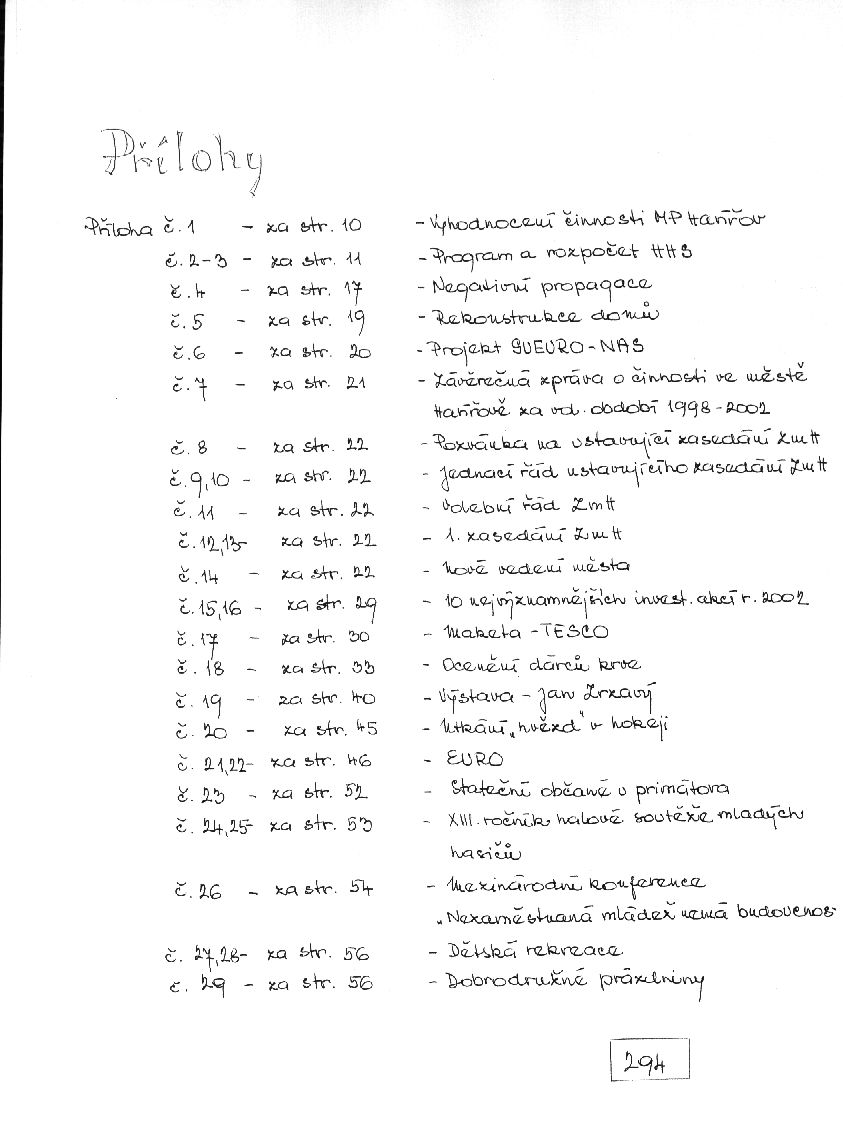 Přílohy
Příloha č. 1 - za str. 10 - Vyhodnocení činnosti MP Havířov
č. 2-3 - za str. 11 - Program a rozpočet HHS
č. 4 - za str. 17 - Negativní propagace
č. 5 - za str. 19 - Rekonstrukce domů
č. 6 - za str. 20 - Projekt - NAS
č. 7 - za str. 21 - Závěrečná zpráva o činnosti ve městě
Havířově za vol. období 1998-2002
č. 8 - za str. 22 - Pozvánka na ustavující zasedání ZmH
č. 9,10 - za str. 22 - Jednací řád ustavujícího zasedání ZmH
č. 11 - za str. 22 - Volební řád ZmH
č. 12,13- za str. 22 - 1. zasedání ZmH
č. 14 - za str. 22 - Nové vedení města
č. 15,16 - za str. 29 - 10 nejvýznamnějších invest. akcí r. 2002
č. 17 - za str. 30 - Maketa - TESCO
č. 18 - za str. 33 - Ocenění dárců krve
č. 19 - za str. 40 - Výstava - Jan Zrzavý
č. 20 - za str. 45 - Utkání „hvězd" v hokeji
č. 21,22- za str. 46 - EURO
č. 23 - za str. 52 - Stateční občané u primátora
č. 24,25- za str. 53 - XIII. ročník halové soutěže mladých
hasičů
č. 26 - za str. 54 - Mezinárodní konference
„Nezaměstnaná mládež nemá budovenos
č. 27,28- za str. 56 - Dětská rekreace
č. 29 - za str. 56 - Dobrodružné prázdniny
294